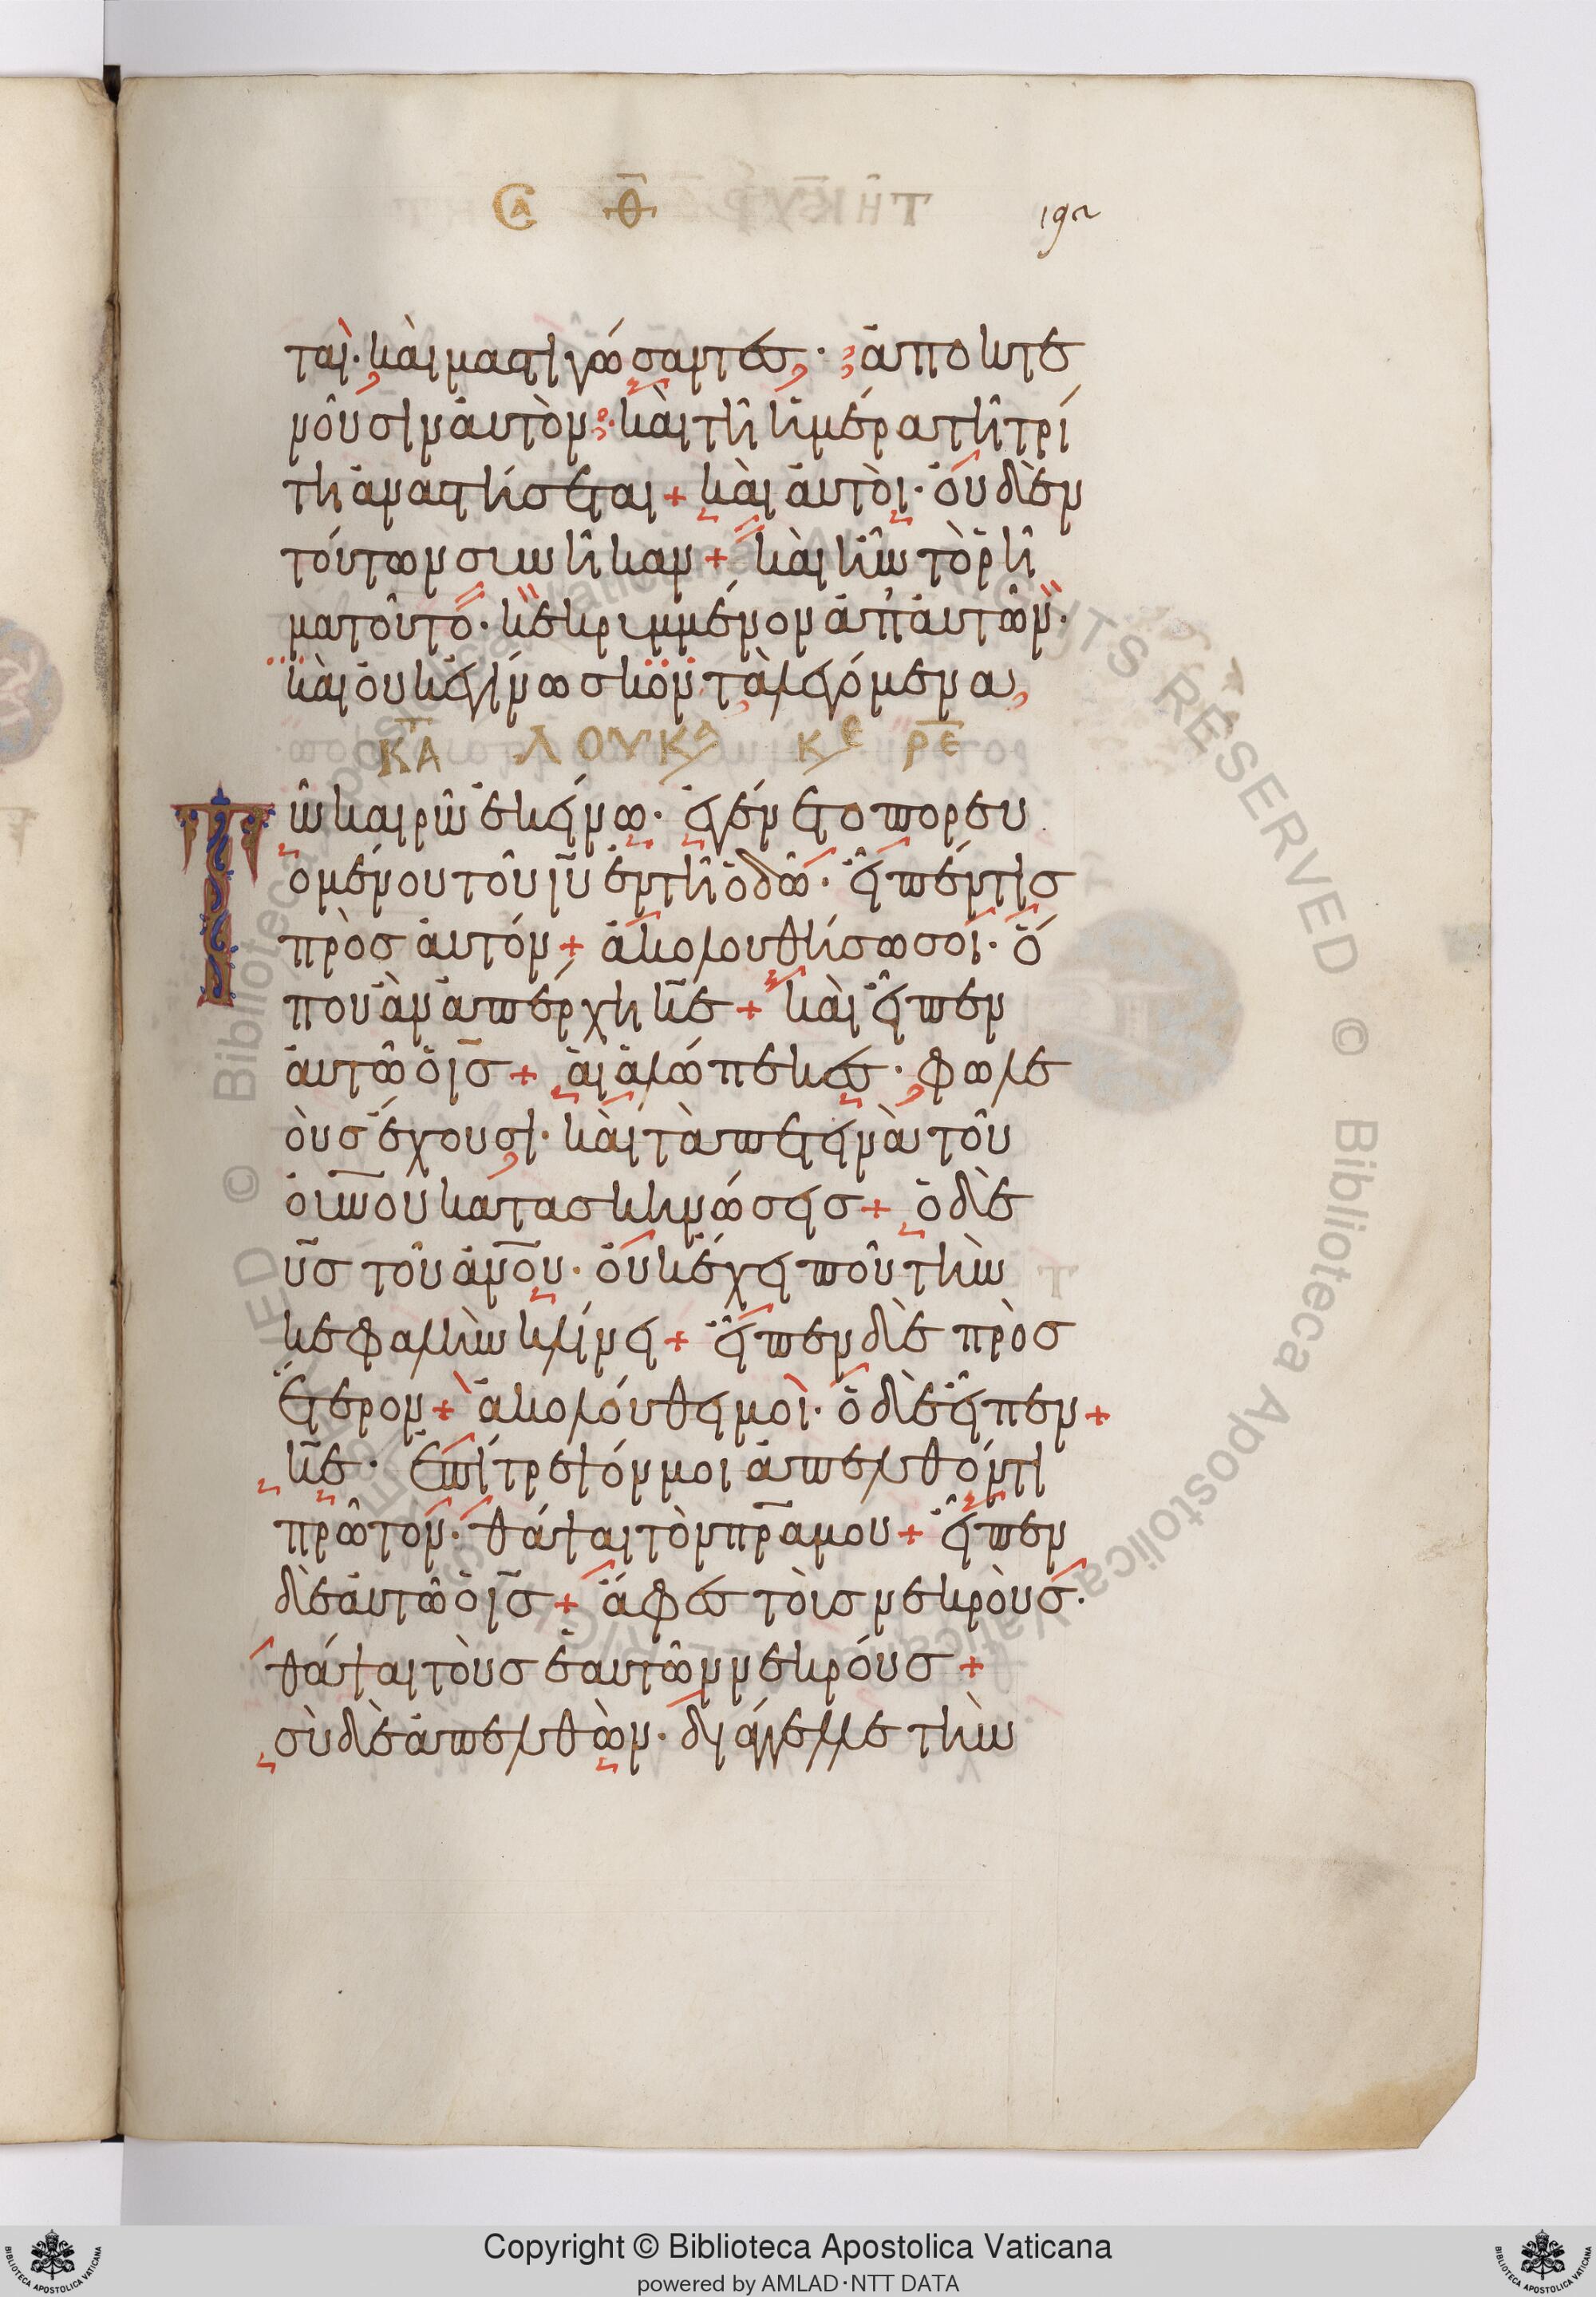 CΑ Θ̅
192
ται· καὶ μαστιγώσαντες· ἀποκτε
νοῦσιν αὐτόν· καὶ τῆ ἡμέρα τῆ τρί
τη ἀναστήσεται + καὶ αὐτοὶ· οὐδὲν
τούτων συνῆκαν + καὶ ἦν τὸ ῥῆ
μα τοῦτο· κεκρυμμένον ἀπ' αὐτῶν·
καὶ οὐκ ἐγίνωσκον τὰ λεγόμενα
ΚΑ̅ ΛΟΥΚ ΚΕ ΡΕ̅
Τῶ καιρῶ ἐκείνω· ἐγένετο πορευ
ομένου τοῦ ιυ̅ ἐν τῆ ὁδῶ· εἶπέν τις
πρὸς αὐτόν + ἀκολουθήσω σοι· ὅ
που ἂν ἀπέρχη κ̅ε + καὶ εἶπεν
αὐτῶ ὁ ι̅ς + αἱ ἀλώπεκες· φωλε
οὺς ἔχουσι· καὶ τὰ πετεινὰ τοῦ
οὐ̅νου κατασκηνώσεις + ὁ δὲ
υ̅ς τοῦ ἀν̅ου· οὐκ ἔχει ποῦ τὴν
κεφαλὴν κλίνει + εἶπεν δὲ πρὸς
ἕτερον + ἀκολούθει μοὶ· ὁ δὲ εἶπεν +
κ̅ε· ἐπίτρεψόν μοι ἀπελθόντι
πρῶτον· θάψαι τὸν πρ̅α μου + εἶπεν
δὲ αὐτῶ ὁ ι̅ς + ἄφες τοὺς νεκροὺς·
θάψαι τοὺς ἑαυτῶν νεκρούς +
σὺ δὲ ἀπελθὼν· διάγγελλε τὴν
Copyright © Biblioteca Apostolica Vaticana
powered by AMLAD·NTT DATA